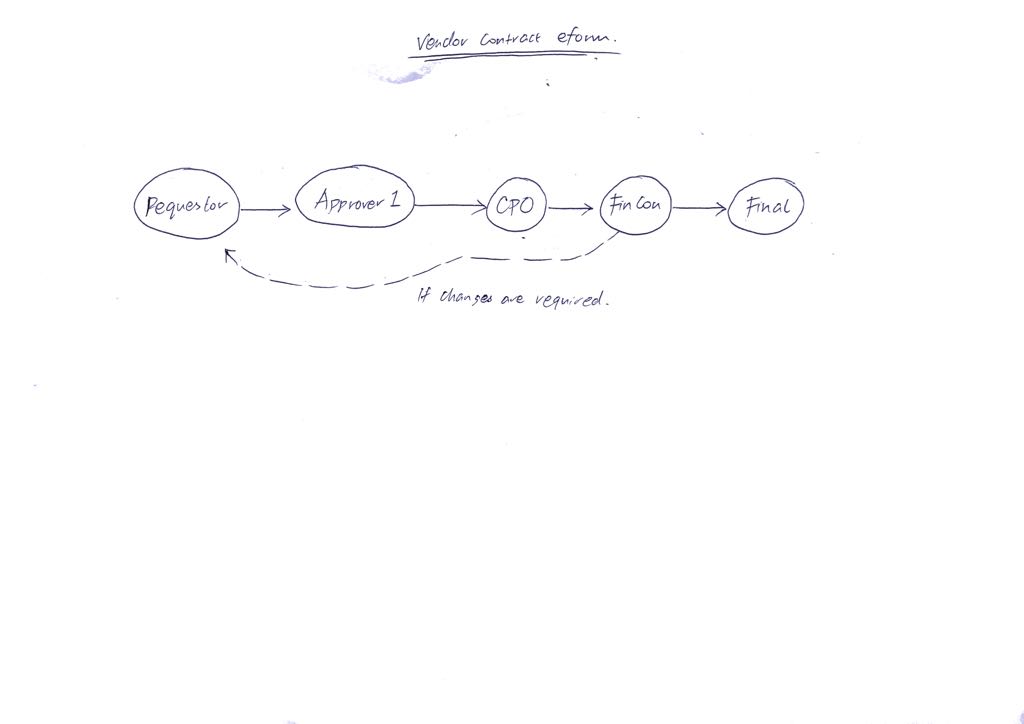 Vendor Contract eform.
Requestor
Approver 1
CPO
FinCon
Final
If changes are required.